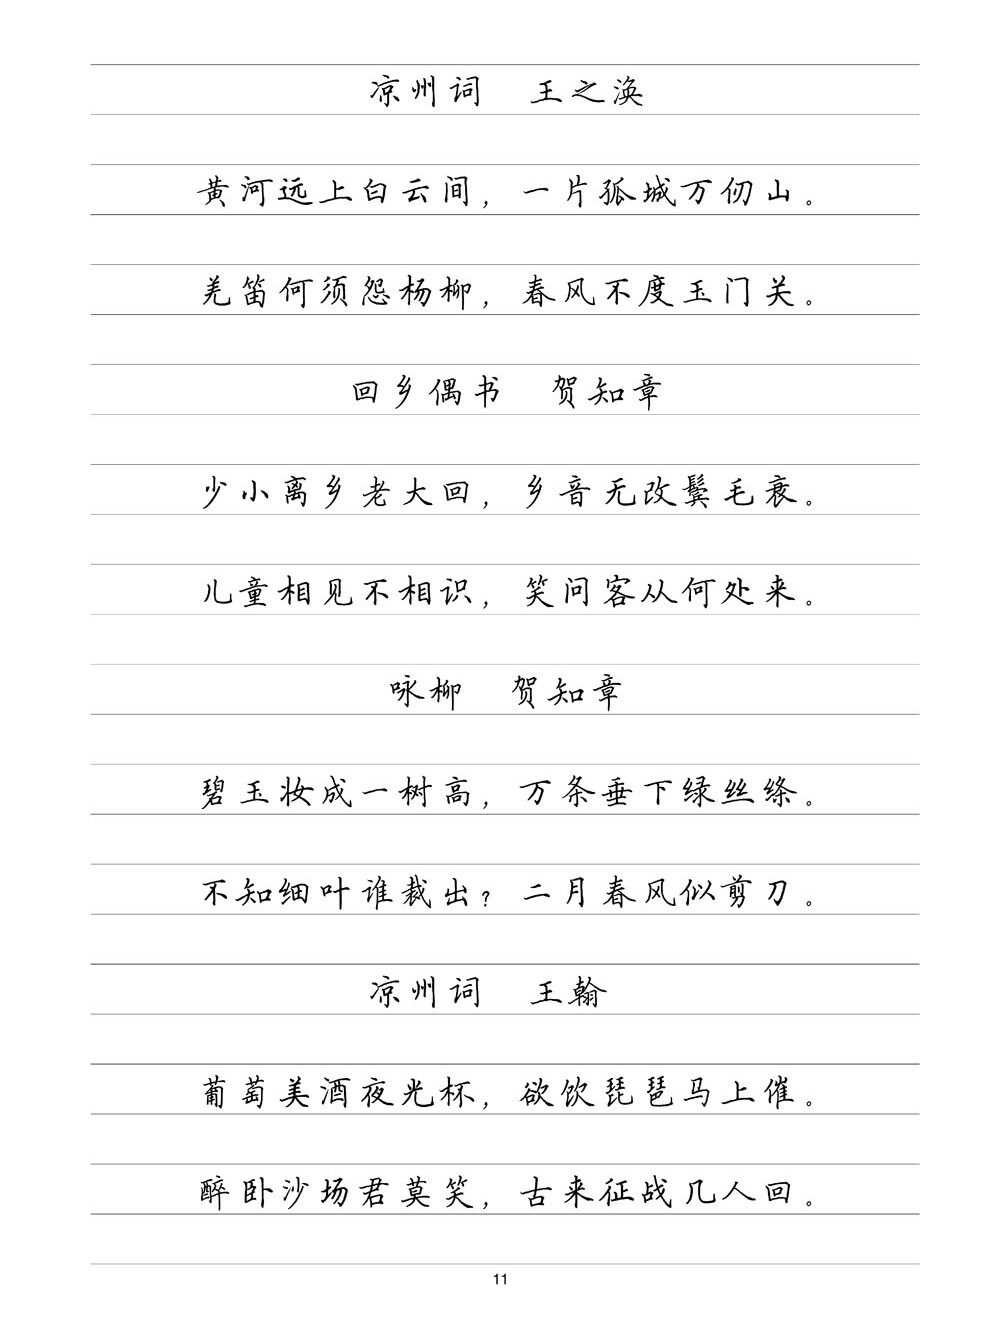 凉州词　王之涣
黄河远上白云间，一片孤城万仞山。
羌笛何须怨杨柳，春风不度玉门关。
回乡偶书　贺知章
少小离乡老大回，乡音无改鬓毛衰。
儿童相见不相识，笑问客从何处来。
咏柳　贺知章
碧玉妆成一树高，万条垂下绿丝绦。
不知细叶谁裁出？二月春风似剪刀。
凉州词　王翰
葡萄美酒夜光杯，欲饮琵琶马上催。
醉卧沙场君莫笑，古来征战几人回。
11